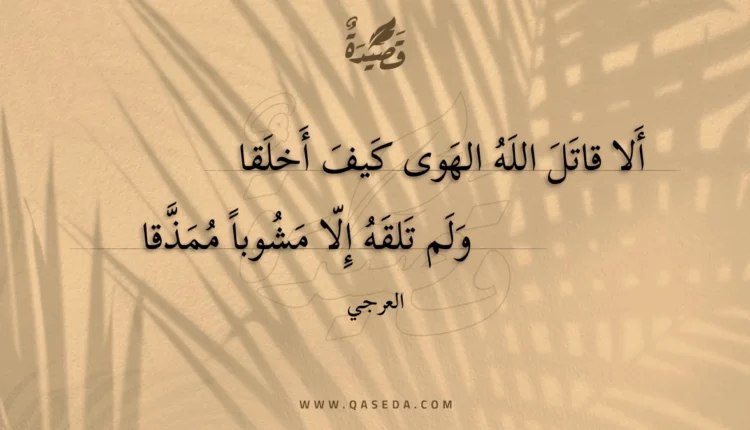 قَصِيدَةٌ
أَلا قاتَلَ اللَهُ الهَوى كَيفَ أَخلَقا
وَلَم تَلقَهُ إِلّا مَشُوباً مُمَذَّقا
العرجي
WWW.QASEDA.COM